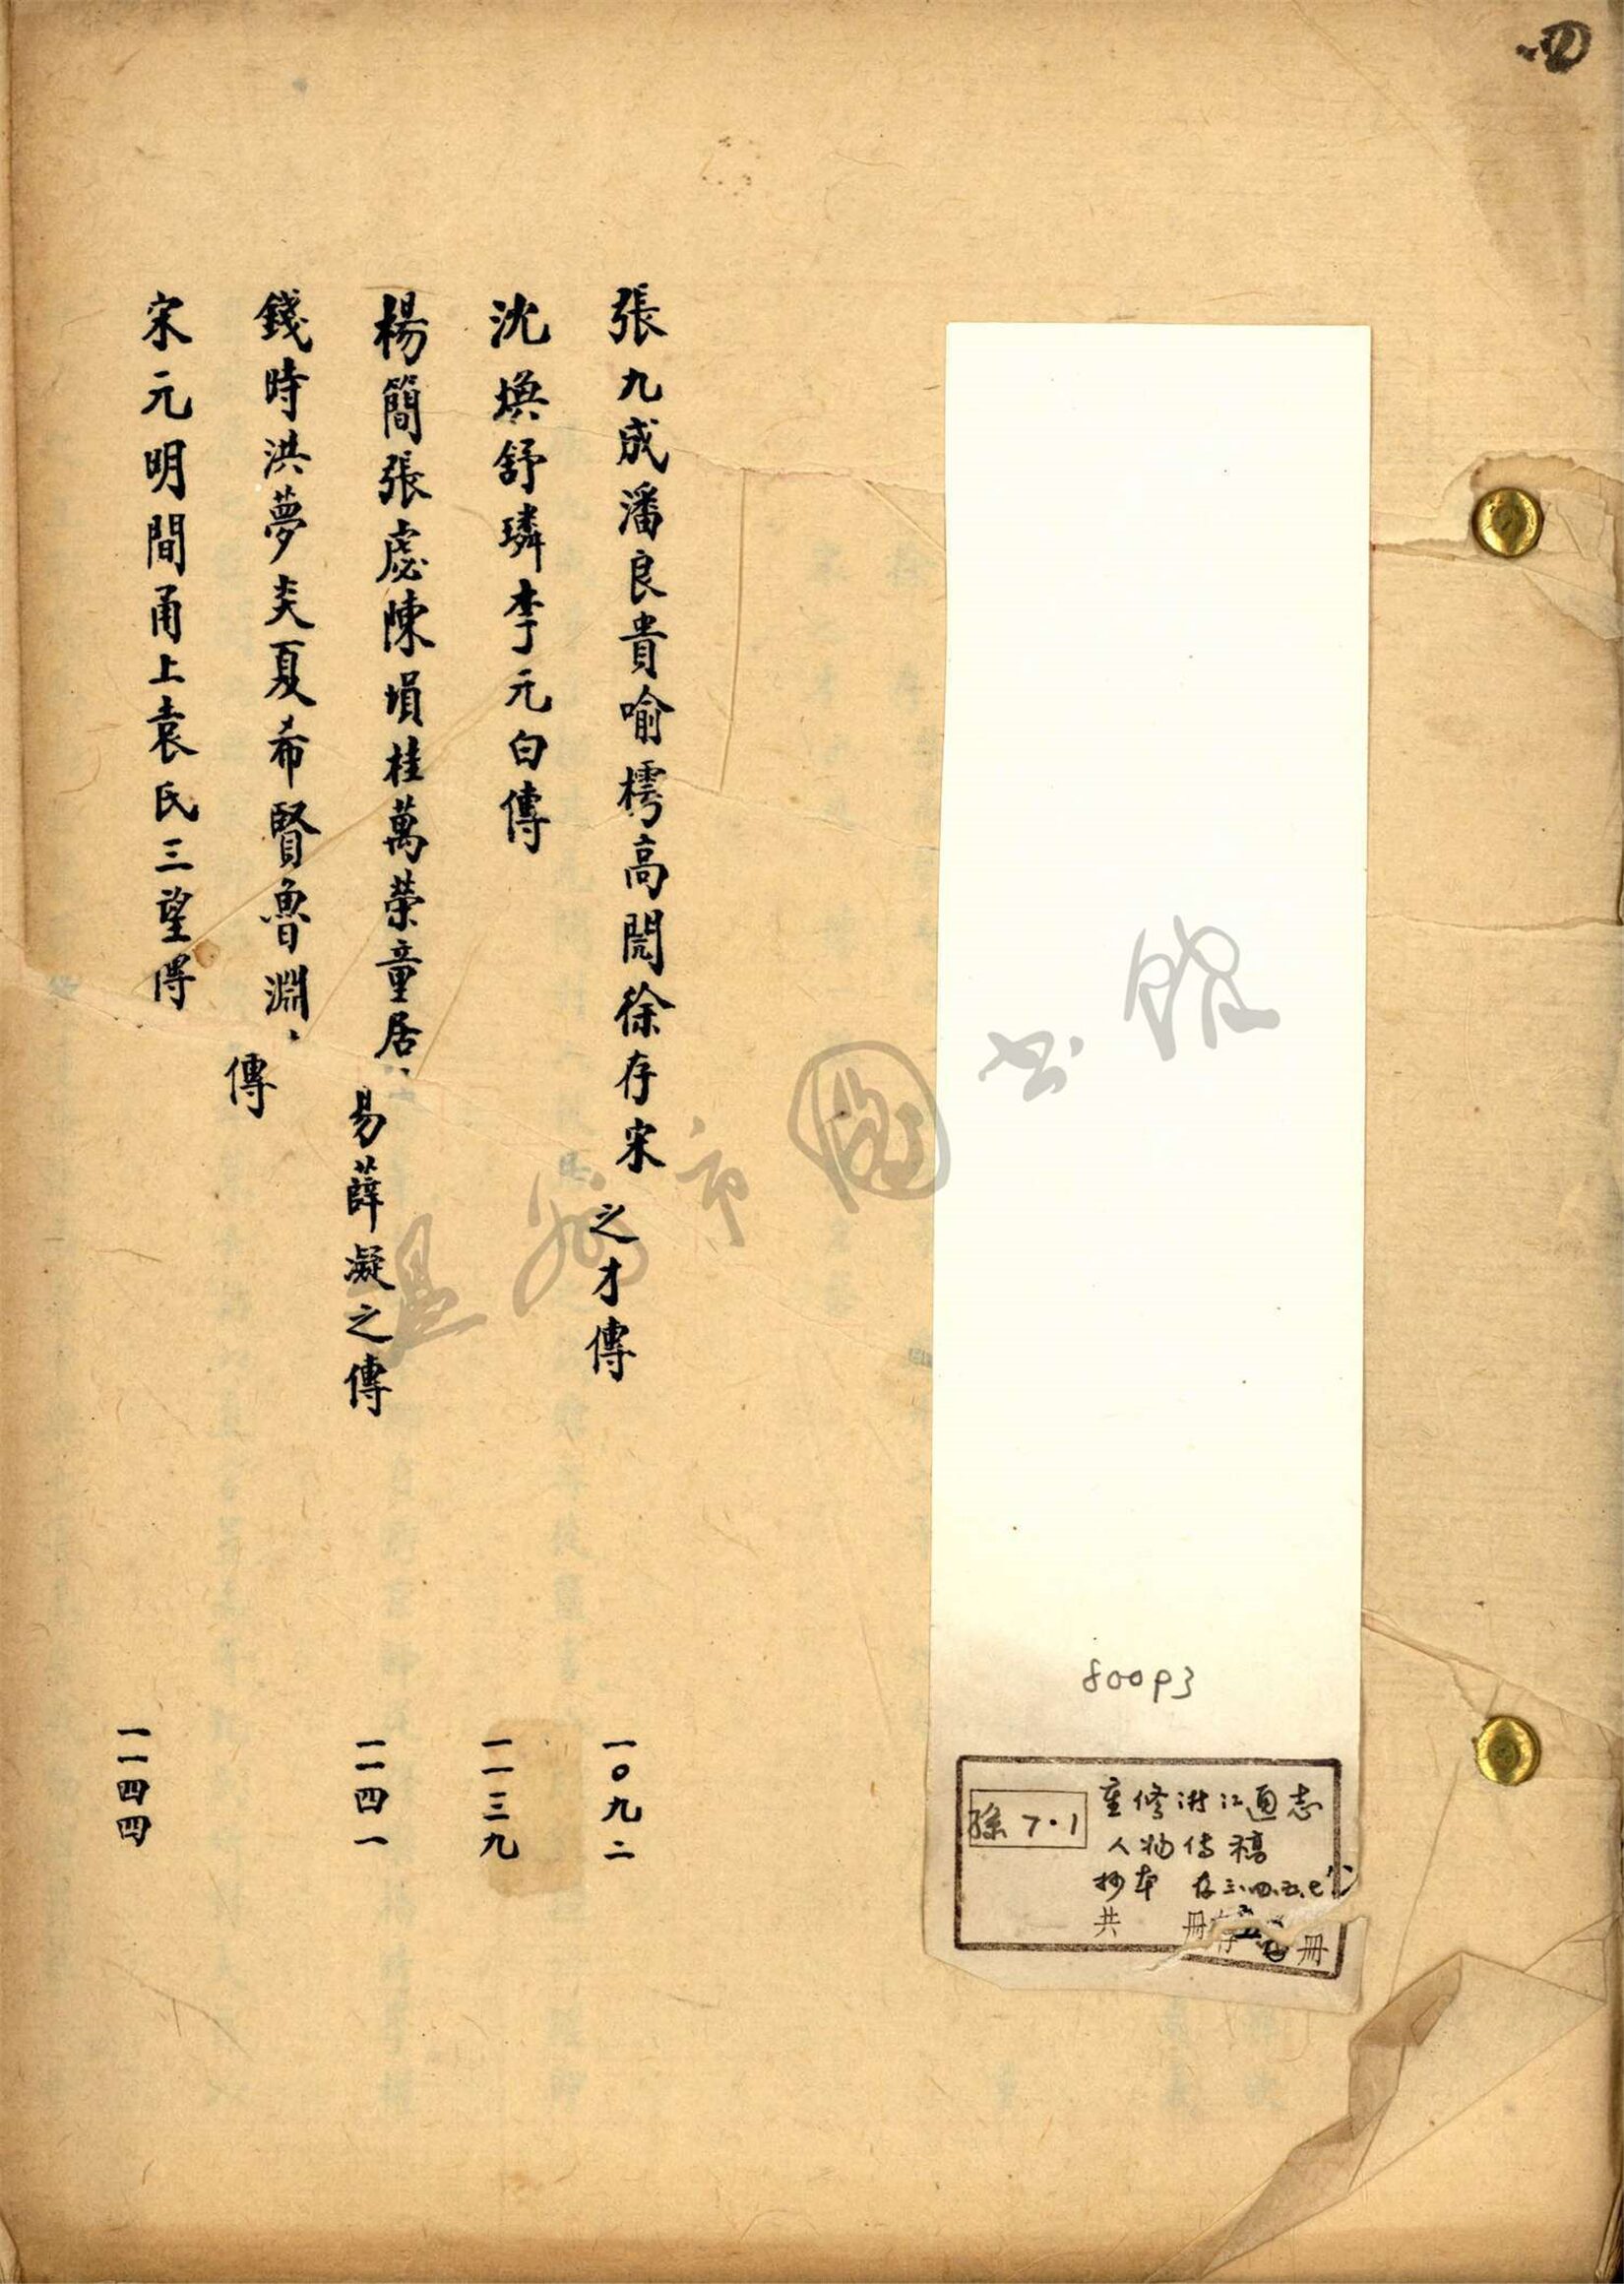 張九成潘良貴喻樗高閌徐存宋之才傳 一〇九二
沈煥舒璘李元白傳 一一三九
楊簡張虙陳塤桂萬榮童居易薛凝之傳 一一四一
錢時洪夢炎夏希賢魯淵傳
宋元明間甬上袁氏三望傳 一一四四
80093
孫 7·1
重修浙江通志
人物傳稿
抄本 存三、四、五、七
共 冊存 冊
温州市圖书館